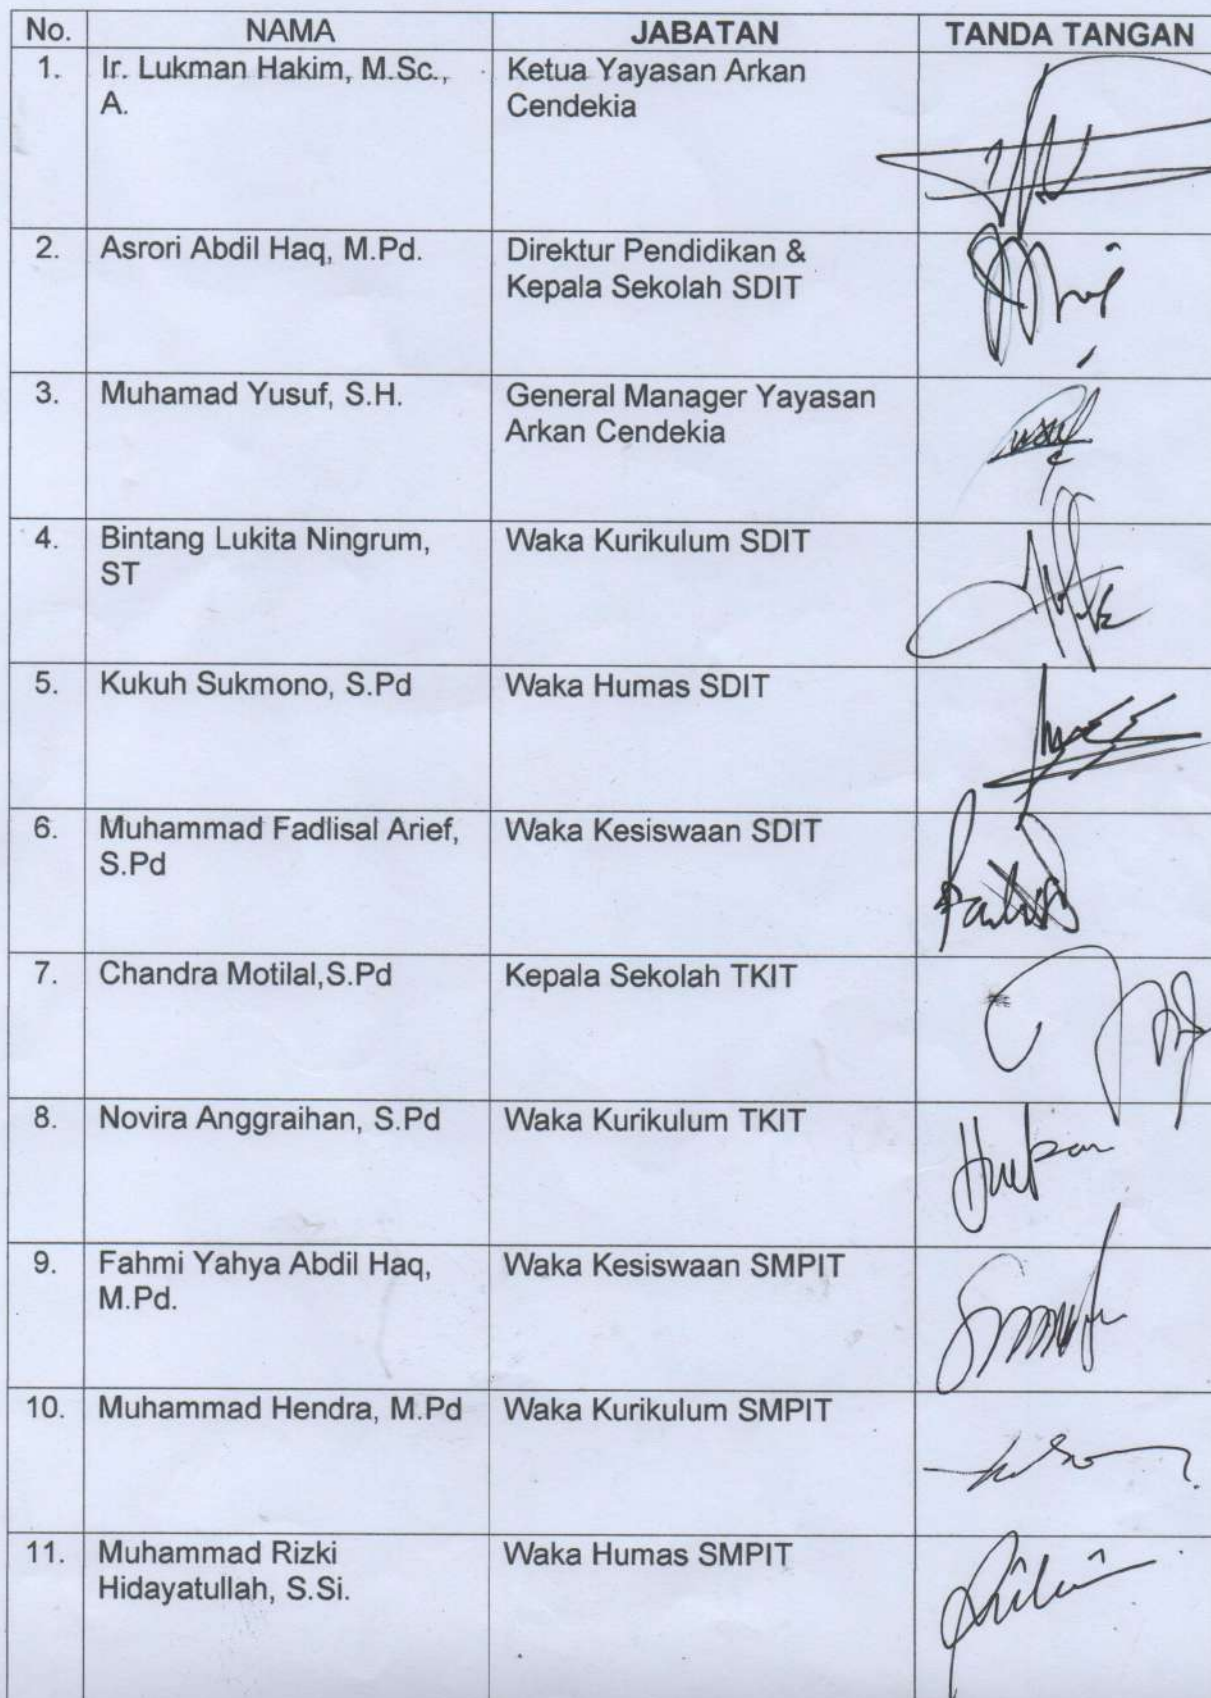 No. NAMA JABATAN TANDA TANGAN
1. Ir. Lukman Hakim, M.Sc., Ketua Yayasan Arkan
A. Cendekia
2. Asrori Abdil Haq, M.Pd. Direktur Pendidikan &
Kepala Sekolah SDIT
3. Muhamad Yusuf, S.H. General Manager Yayasan
Arkan Cendekia
4. Bintang Lukita Ningrum, Waka Kurikulum SDIT
ST
5. Kukuh Sukmono, S.Pd Waka Humas SDIT
6. Muhammad Fadlisal Arief, Waka Kesiswaan SDIT
S.Pd
7. Chandra Motilal,S.Pd Kepala Sekolah TKIT
8. Novira Anggraihan, S.Pd Waka Kurikulum TKIT
9. Fahmi Yahya Abdil Haq, Waka Kesiswaan SMPIT
M.Pd.
10. Muhammad Hendra, M.Pd Waka Kurikulum SMPIT
11. Muhammad Rizki Waka Humas SMPIT
Hidayatullah, S.Si.